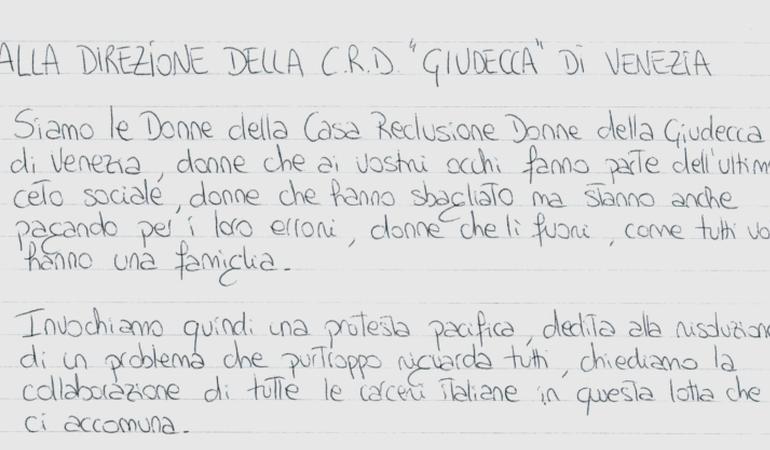 ALLA DIREZIONE DELLA C.R.D. "GIUDECCA" Di VENEZiA
Siamo le Donne della Casa Reclusione Donne della Giudecca
di Venezia, donne che ai vostri occhi fanno parte dell'ultim
ceto sociale, donne che hanno sbagliato ma stanno anche
pagando per i loro errori, donne che lì fuori, come tutti vo
hanno una famiglia.
Invochiamo quindi una protesta pacifica, dedita alla risoluzion
di un problema che purtroppo riguarda tutti, chiediamo la
collaborazione di tutte le carceri italiane in questa lotta che
ci accomuna.